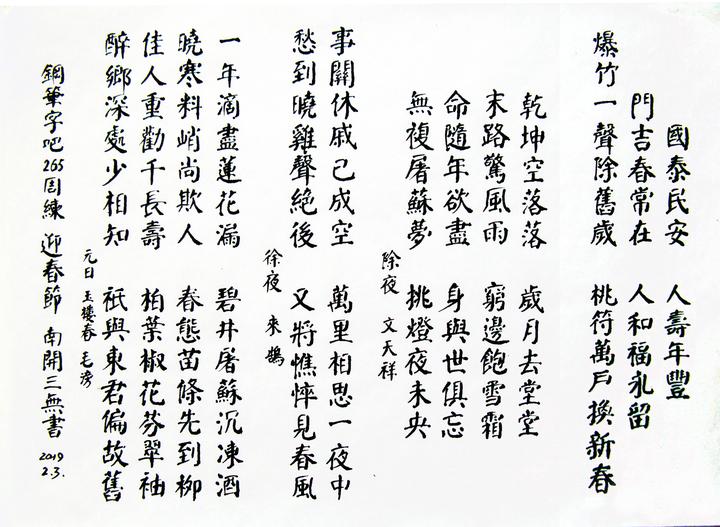 國泰民安 人壽年豐
門吉春常在 人和福永留
爆竹一聲除舊歲 桃符萬戶換新春
乾坤空落落 歲月去堂堂
末路驚風雨 窮邊飽雪霜
命隨年欲盡 身與世俱忘
無複屠蘇夢 挑燈夜未央
除夜 文天祥
事關休戚已成空 萬里相思一夜中
愁到曉雞聲絕後 又將憔悴見春風
徐夜 來鵠
一年滴盡蓮花漏 碧井屠蘇沉凍酒
曉寒料峭尚欺人 春態苗條先到柳
佳人重勸千長壽 柏葉椒花芬翠袖
醉鄉深處少相知 祇與東君偏故舊
元日 玉樓春 毛滂
鋼筆字吧265周練 迎春節 南開三無書 2019 2.3.